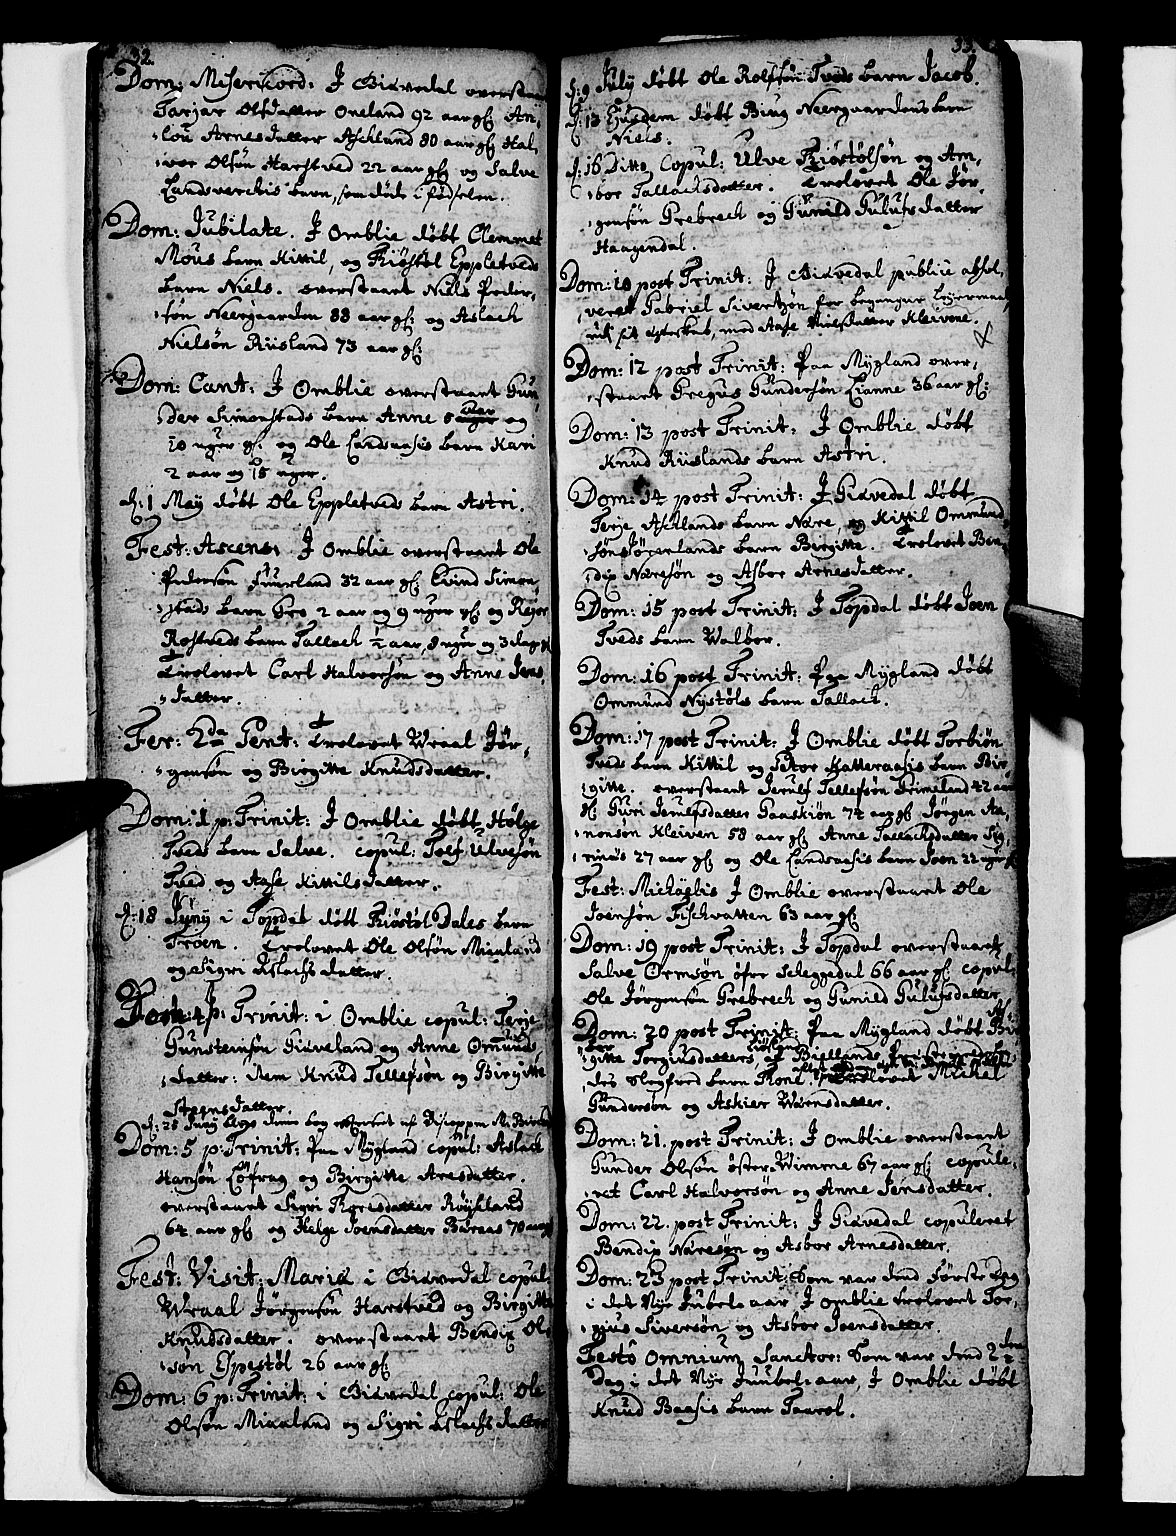 32.
Dom: Misericord: I Giøvedal overstaaet
Tarjær Olsdatter Oneland 92 aar gl: An,
lou Arnesdatter Aschlund 80 aar gl: Hal,
vor Olsøn Harstved 22 aar gl: og Salve
Landsverchis barn, som døde i fødselen.
Dom: Jubilate. I Omblie døbt Clemmet
Møus barn Kittil, og Kiøstol Eppletveds
barn Niels. overstaaet Niels Peder,
søn Neergaarden 83 aar gl: og Aslach
Nielsøn Riisland 73 aar gl:
Dom: Cant: I Omblie overstaaet Gun,
der Simonstads barn Anne 8 aar og
10 uger gl: og Ole Landsaasis barn Kari
2 aar og 15 uger.
d: 1 May døbt Ole Eppletveds barn Astri.
Fest: Ascens: I Omblie overstaaet Ole
Pedersøn Fuurland 32 aar gl: Evind Simon,
stads barn Gro 2 aar og 9 uger gl: og Reier
Rostveds barn Tallach ½ aar, 8 uger og 3 dage gl
Trolovet Carl Halvorsøn og Anne Jens,
datter.
Fer: 2da Pent: Trolovet Wraal Jør,
gensøn og Birgitte Knudsdatter.
Dom: 1 p: Trinit: I Omblie døbt Hølge
Tveds barn Salve. copul: Tolf Ulvesøn
Tved og Aase Kittilsdatter.
d: 18 Juny i Topdal døbt Kiøstol Dales barn
Troen. Trolovet Ole Olsøn Mieland
og Sigri Aslachsdatter.
Dom: 4 p: Trinit: i Omblie copul: Terje
Gunsteinsøn Giøveland og Anne Omunds
datter: Item Knud Tellefsøn og Birgitte
Steensdatter.
d: 25 Juny blev denne bog efterseet af Bisoppen
Dom: 5 p: Trinit: Paa Mygland copul: Aslach
Hansøn Løfrag og Birgitte Aresdatter.
overstaaet Sigri Toresdatter Røysland
64 aar gl: og Helge Joensdatter Buraas 70 aar gl
Fest: Visit: Mariæ i Giøvedal copul:
Wraal Jørgensøn Harstved og Birgitte
Knudsdatter. overstaaet Bendix Ol
søn Espestøl 26 aar gl:
Dom: 6 p: Trinit: i Giøvedal copul: Ole
Olsøn Mieland og Sigri Aslachsdatter
33.
d: 9 July døbt Ole Rolfsøn Tveds barn Jacob.
d: 13 Ejusdem døbt Biug Neergaardens barn
Niels.
d: 16 Ditto Copul: Ulve Kiøstølsøn og Am,
bor Tallachsdatter. Trolovet Ole Jør,
gensøn Grebrech og Gunild Gulufsdatter
Haagendal.
Dom: 10 post Trinit: I Giøvedal publice absol,
veret Gabriel Sivertsøn for begangne Leyermaal
udi sit Egteskab, med Aase Nielsdatter Kleivene.
Dom: 12 post Trinit: Paa Mygland over,
staaet Gregus Gundersøn Lianne 36 aar gl:
Dom: 13 post Trinit: I Omblie døbt
Knud Riislands barn Astri.
Dom: 14 post Trinit: I Giøvedal døbt
Terje Aschlands barn Nære og Kittil Ommund
søns Jøreslands barn Birgitte. Trolovet Ben,
dix Næresøn og Asbor Arnesdatter.
Dom: 15 post Trinit: I Topdal døbt Joen
Tveds barn Walbor.
Dom: 16 post Trinit: Paa Mygland døbt
Ommund Nystøls barn Tallach.
Dom: 17 post Trinit: I Omblie døbt Torbiøn
Tveds barn Kittil og Peter Katteraasis barn Bir
gitte. overstaaet Jerulf Tellefsøn Grimeland 42 aar
gl: Guri Jerulfsdatter Gaaskiøn 74 aar gl: Jørgen Aa,
nonsøn Kleiven 58 aar gl: Anne Tallachsdatter Sig,
rinæs 27 aar gl: og Ole Landsaasis barn Joen 22 uger gl:
Fest: Michäelis I Omblie overstaaet Ole
Joensøn Fischvatten 63 aar gl:
Dom: 19 post Trinit: I Topdal overstaaet
Salve Ormsøn øfre Seleggedal 66 aar gl: copul:
Ole Jørgensøn Grebrech og Gunild Gulufsdatter
Dom: 20 post Trinit: Paa Mygland døbt Bir
gitte Torgiusdatters
des Slegfred barn Trolovet Michel
Gundersøn og Askier Wærnsdatter.
Dom: 21. post Trinit: I Omblie overstaaet
Gunder Olsøn øster Wimme 67 aar gl: copule,
ret Carl Halvorsøn og Anne Jensdatter.
Dom: 22. post Trinit: I Giøvedal copuleret
Bendix Næresøn og Asbor Arnesdatter.
Dom: 23 post Trinit: Som var dend Første dag
i det Nye Jubel-aar, I Omblie trolovet Tor,
gius Siversøn og Asbor Joensdatter.
Festo Omnium Sanctor: Som var dend 2den
dag i det Nye Juubel: aar, I Omblie døbt
Knud Baasis barn Taarol.